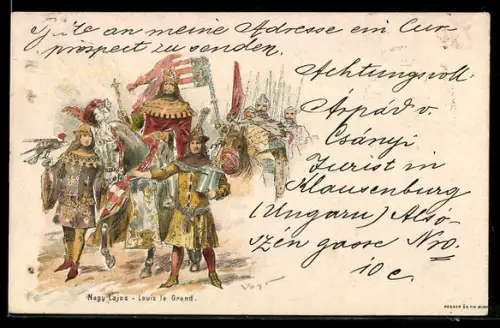 Bitte an meine Adresse ein Cur-
prospect zu senden.
Achtungsvoll
Árpád v.
Csányi
Jurist in
Klausenburg
(Ungarn) Alsó-
szén gasse Nro.
10 c.
Nagy Lajos - Louis le Grand.